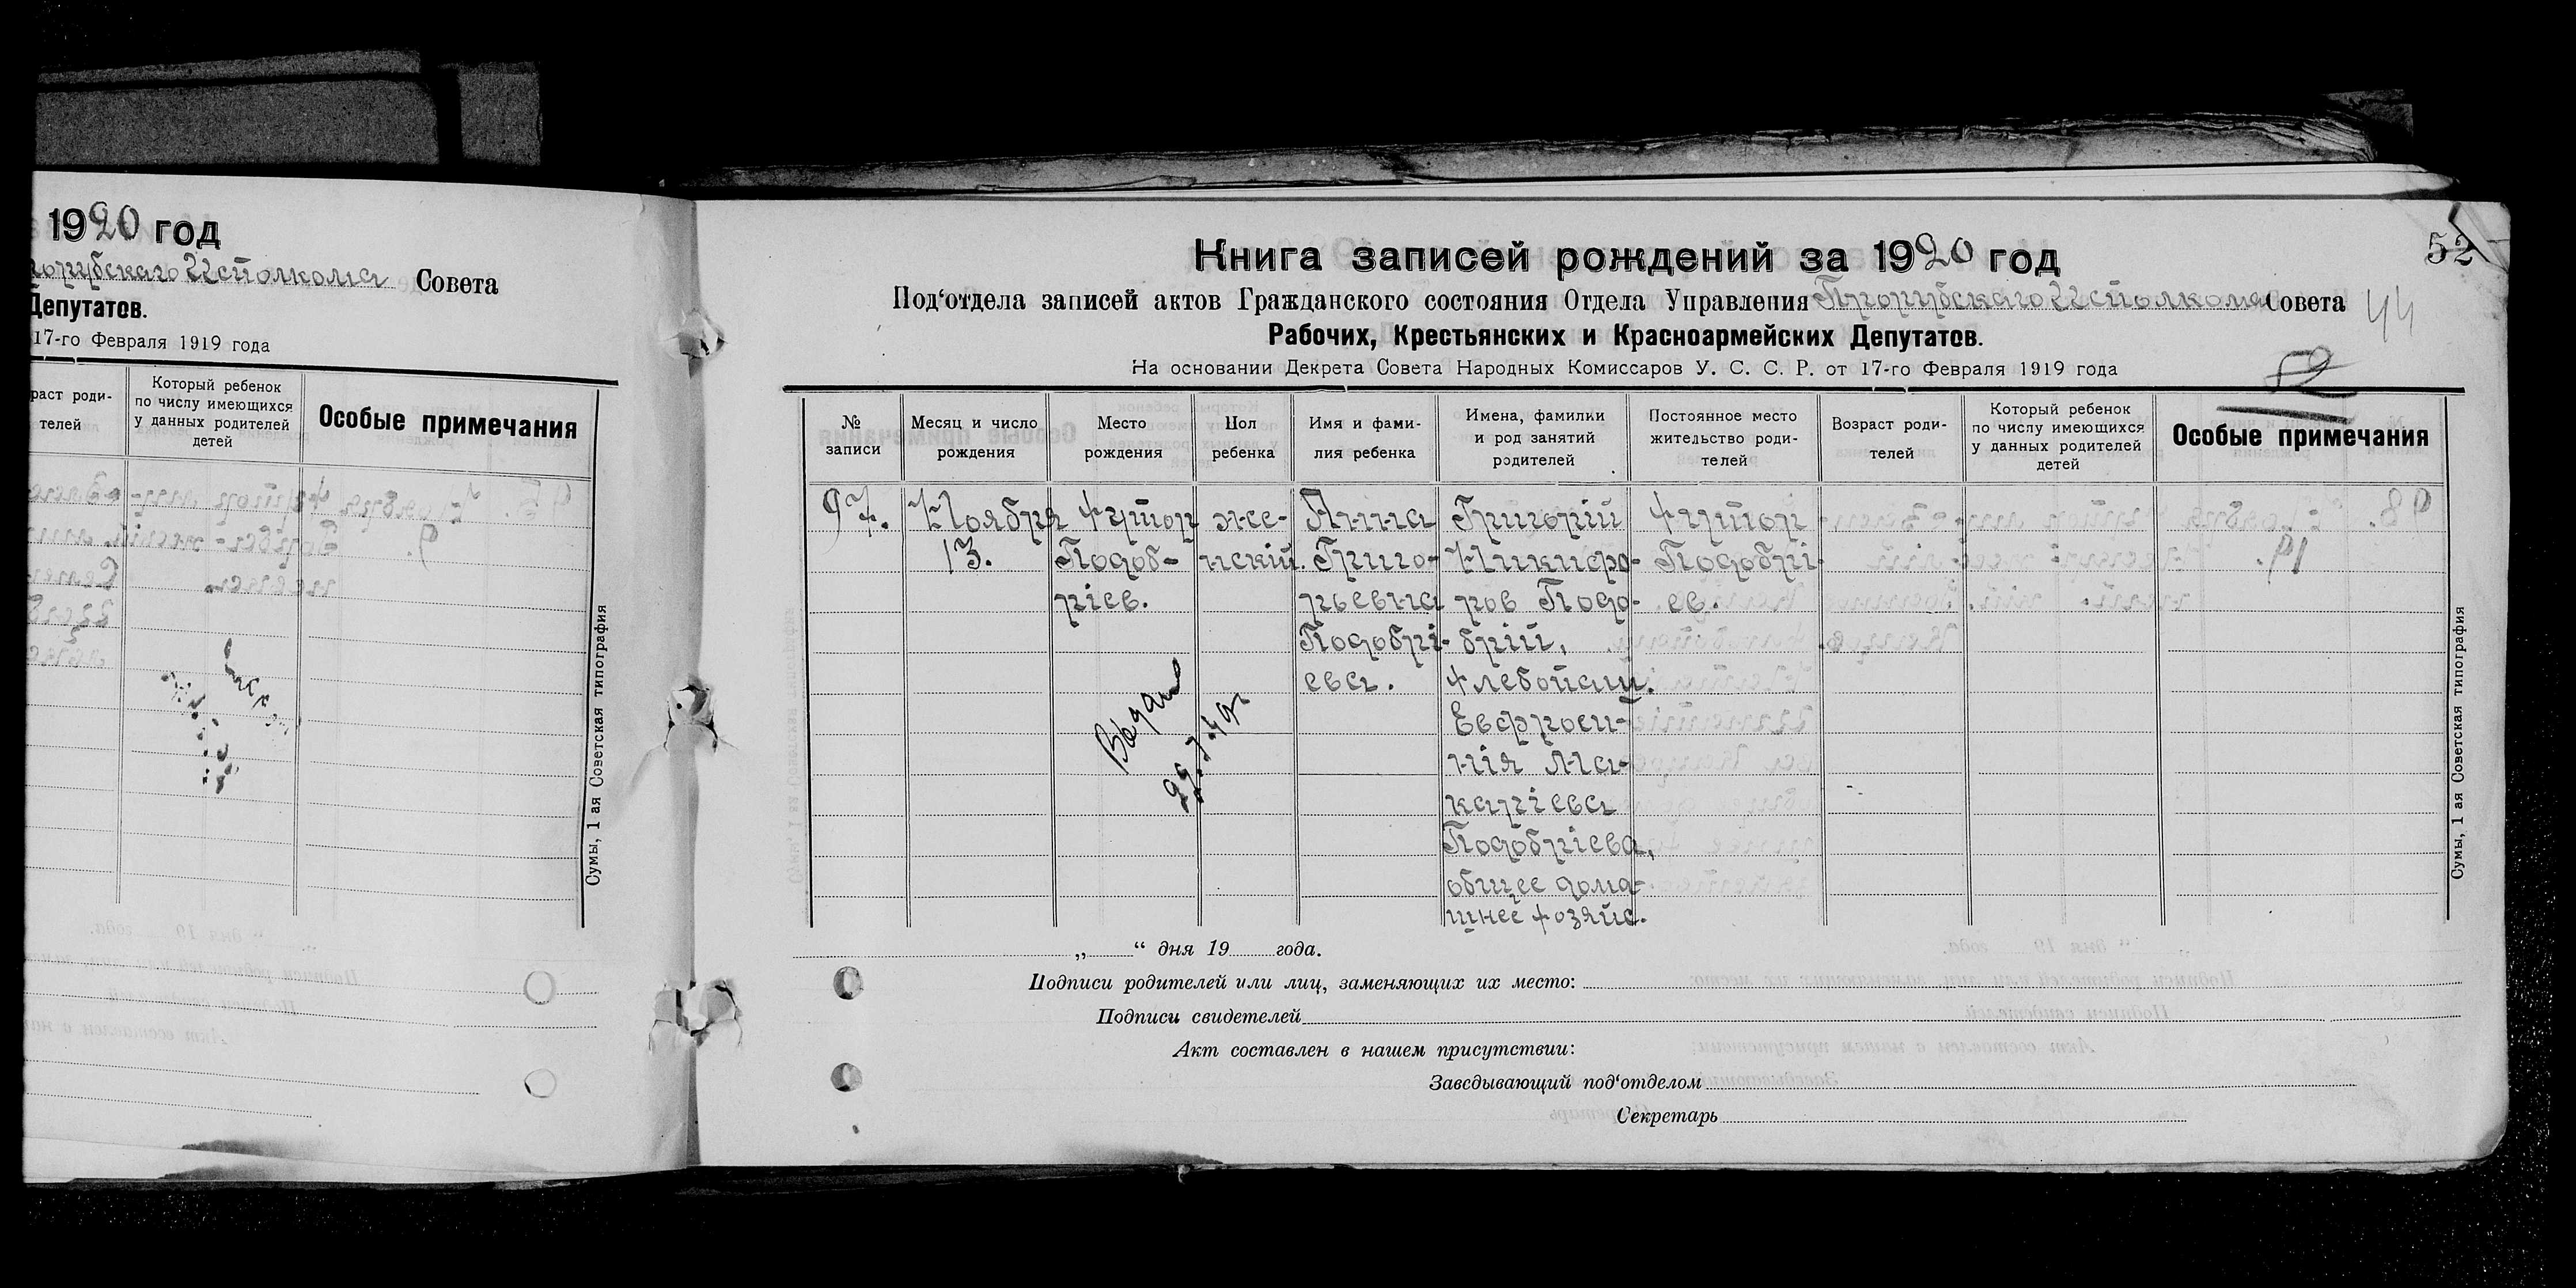 1920 год
Исполкома Совета
Депутатов.
17-го Февраля 1919 года
раст роди-
телей
Который ребенок
по числу имеющихся
у данных родителей
детей
Особые примечания
Сумы, 1 ая Советская типография
52
Книга записей рождений за 1920 год
Под‘отдела записей актов Гражданского состояния Отдела Управления Исполкома Совета
44
Рабочих, Крестьянских и Красноармейских Депутатов.
На основании Декрета Совета Народных Комиссаров У. С. С. Р. от 17-го Февраля 1919 года
52
№
записи
Месяц и число
рождения
Место
рождения
Пол
ребенка
Имя и фами-
лия ребенка
Имена, фамилии
и род занятий
родителей
Постоянное место
жительство роди-
телей
Возраст роди-
телей
Который ребенок
по числу имеющихся
у данных родителей
детей
Особые примечания
97.
Ноября
13.
Хутор
Подоб-
ріев.
же-
нскій.
Анна
Григо-
рьевна
Подобрі-
ева.
Григорій
Никифо-
ров Подо-
брій,
хлебопаш.
Евфроси-
нія Ма-
каріева
Подобріева,
общее дома-
шнее хозяйс.
Хутор
Подобрі-
ев.
Выдано
Сумы, 1 ая Советская типография
„ “ дня 19 года.
Подписи родителей или лиц, заменяющих их место:
Подписи свидетелей
Акт составлен в нашем присутствии:
Заведывающий под‘отделом
Секретарь